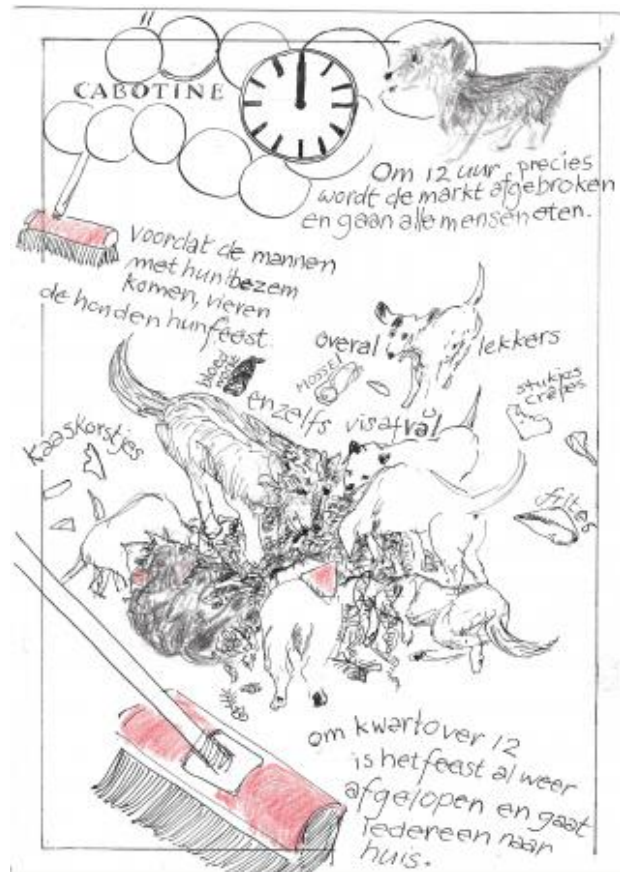 CABOTINE
Om 12 uur precies
wordt de markt afgebroken
en gaan alle mensen eten.
Voordat de mannen
met hun bezem
komen, vieren
de honden hun feest.
overal lekkers
bloed
MOSSEL
stukjes
crêpes
en zelfs visafval
kaaskorstjes
frites
om kwart over 12
is het feest al weer
afgelopen en gaat
iedereen naar
huis.